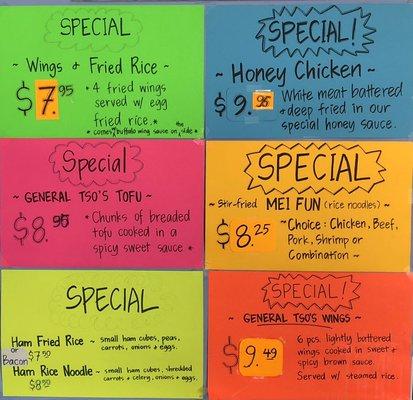 SPECIAL
~ Wings & Fried Rice ~
$7.95
* 4 fried wings
served w/ egg
fried rice. *
* comes buffalo wing sauce on the side *
SPECIAL!
~ Honey Chicken ~
$9.95
White meat battered
& deep fried in our
special honey sauce.
Special
~ GENERAL TSO'S TOFU ~
$8.95
* Chunks of breaded
tofu cooked in a
spicy sweet sauce *
SPECIAL
~ Stir-fried MEI FUN (rice noodles) ~
$8.25
~ Choice: Chicken, Beef,
Pork, Shrimp or
Combination ~
SPECIAL
Ham Fried Rice ~ small ham cubes, peas,
carrots, onions & eggs.
or
Bacon $7.50
Ham Rice Noodle ~ small ham cubes, shredded
carrots & celery, onions & eggs.
$8.50
SPECIAL!
~ GENERAL TSO'S WINGS ~
$9.49
6 pcs. lightly battered
wings cooked in sweet &
spicy brown sauce.
Served w/ steamed rice.